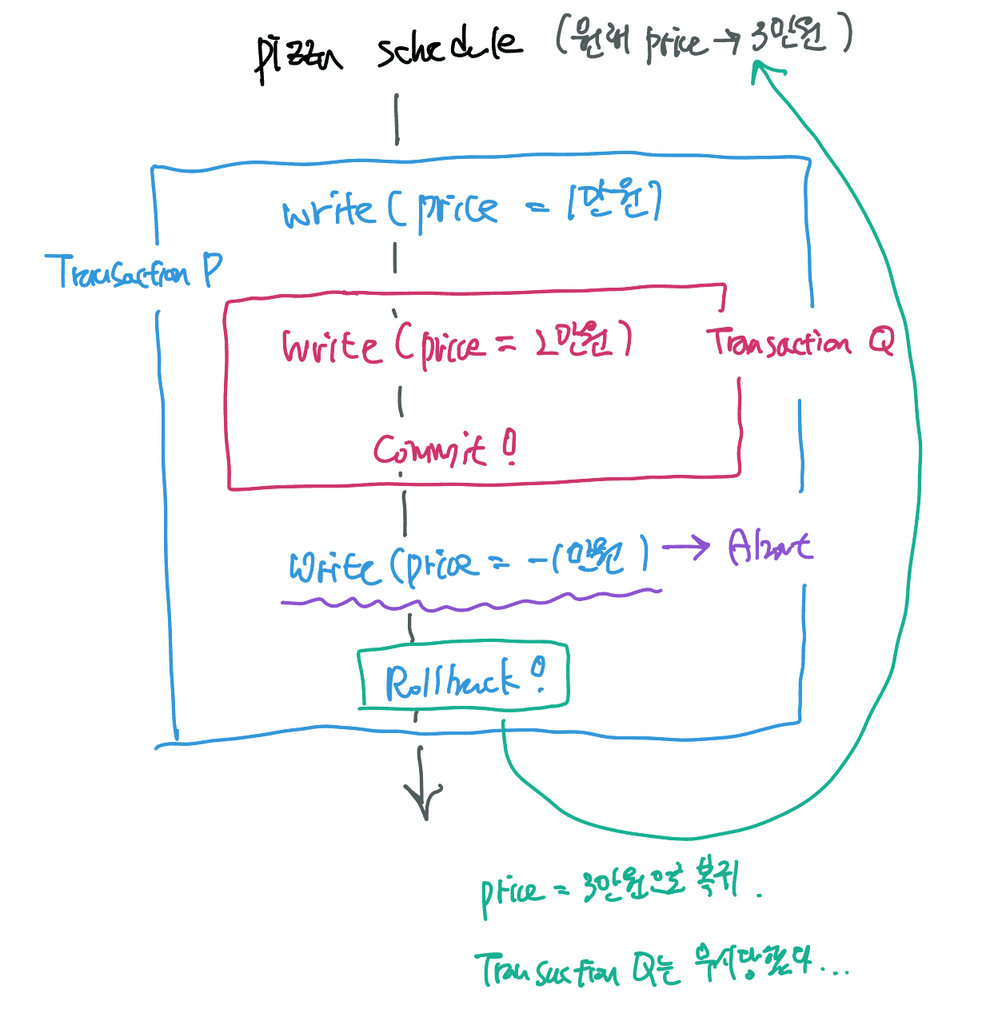 pizza schedule (원래 price → 3만원)
write (price = 1만원)
Transaction P
write (price = 2만원)
Transaction Q
Commit!
write (price = -1만원) → Abort
Rollback!
price = 3만원으로 복귀.
Transaction Q는 무시당했다...